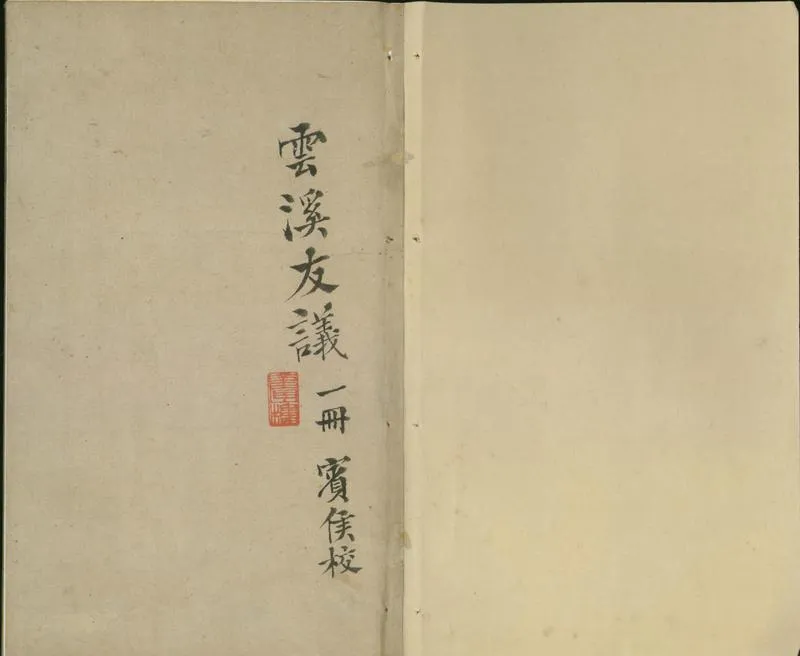 雲溪友議 一冊 賓侯校